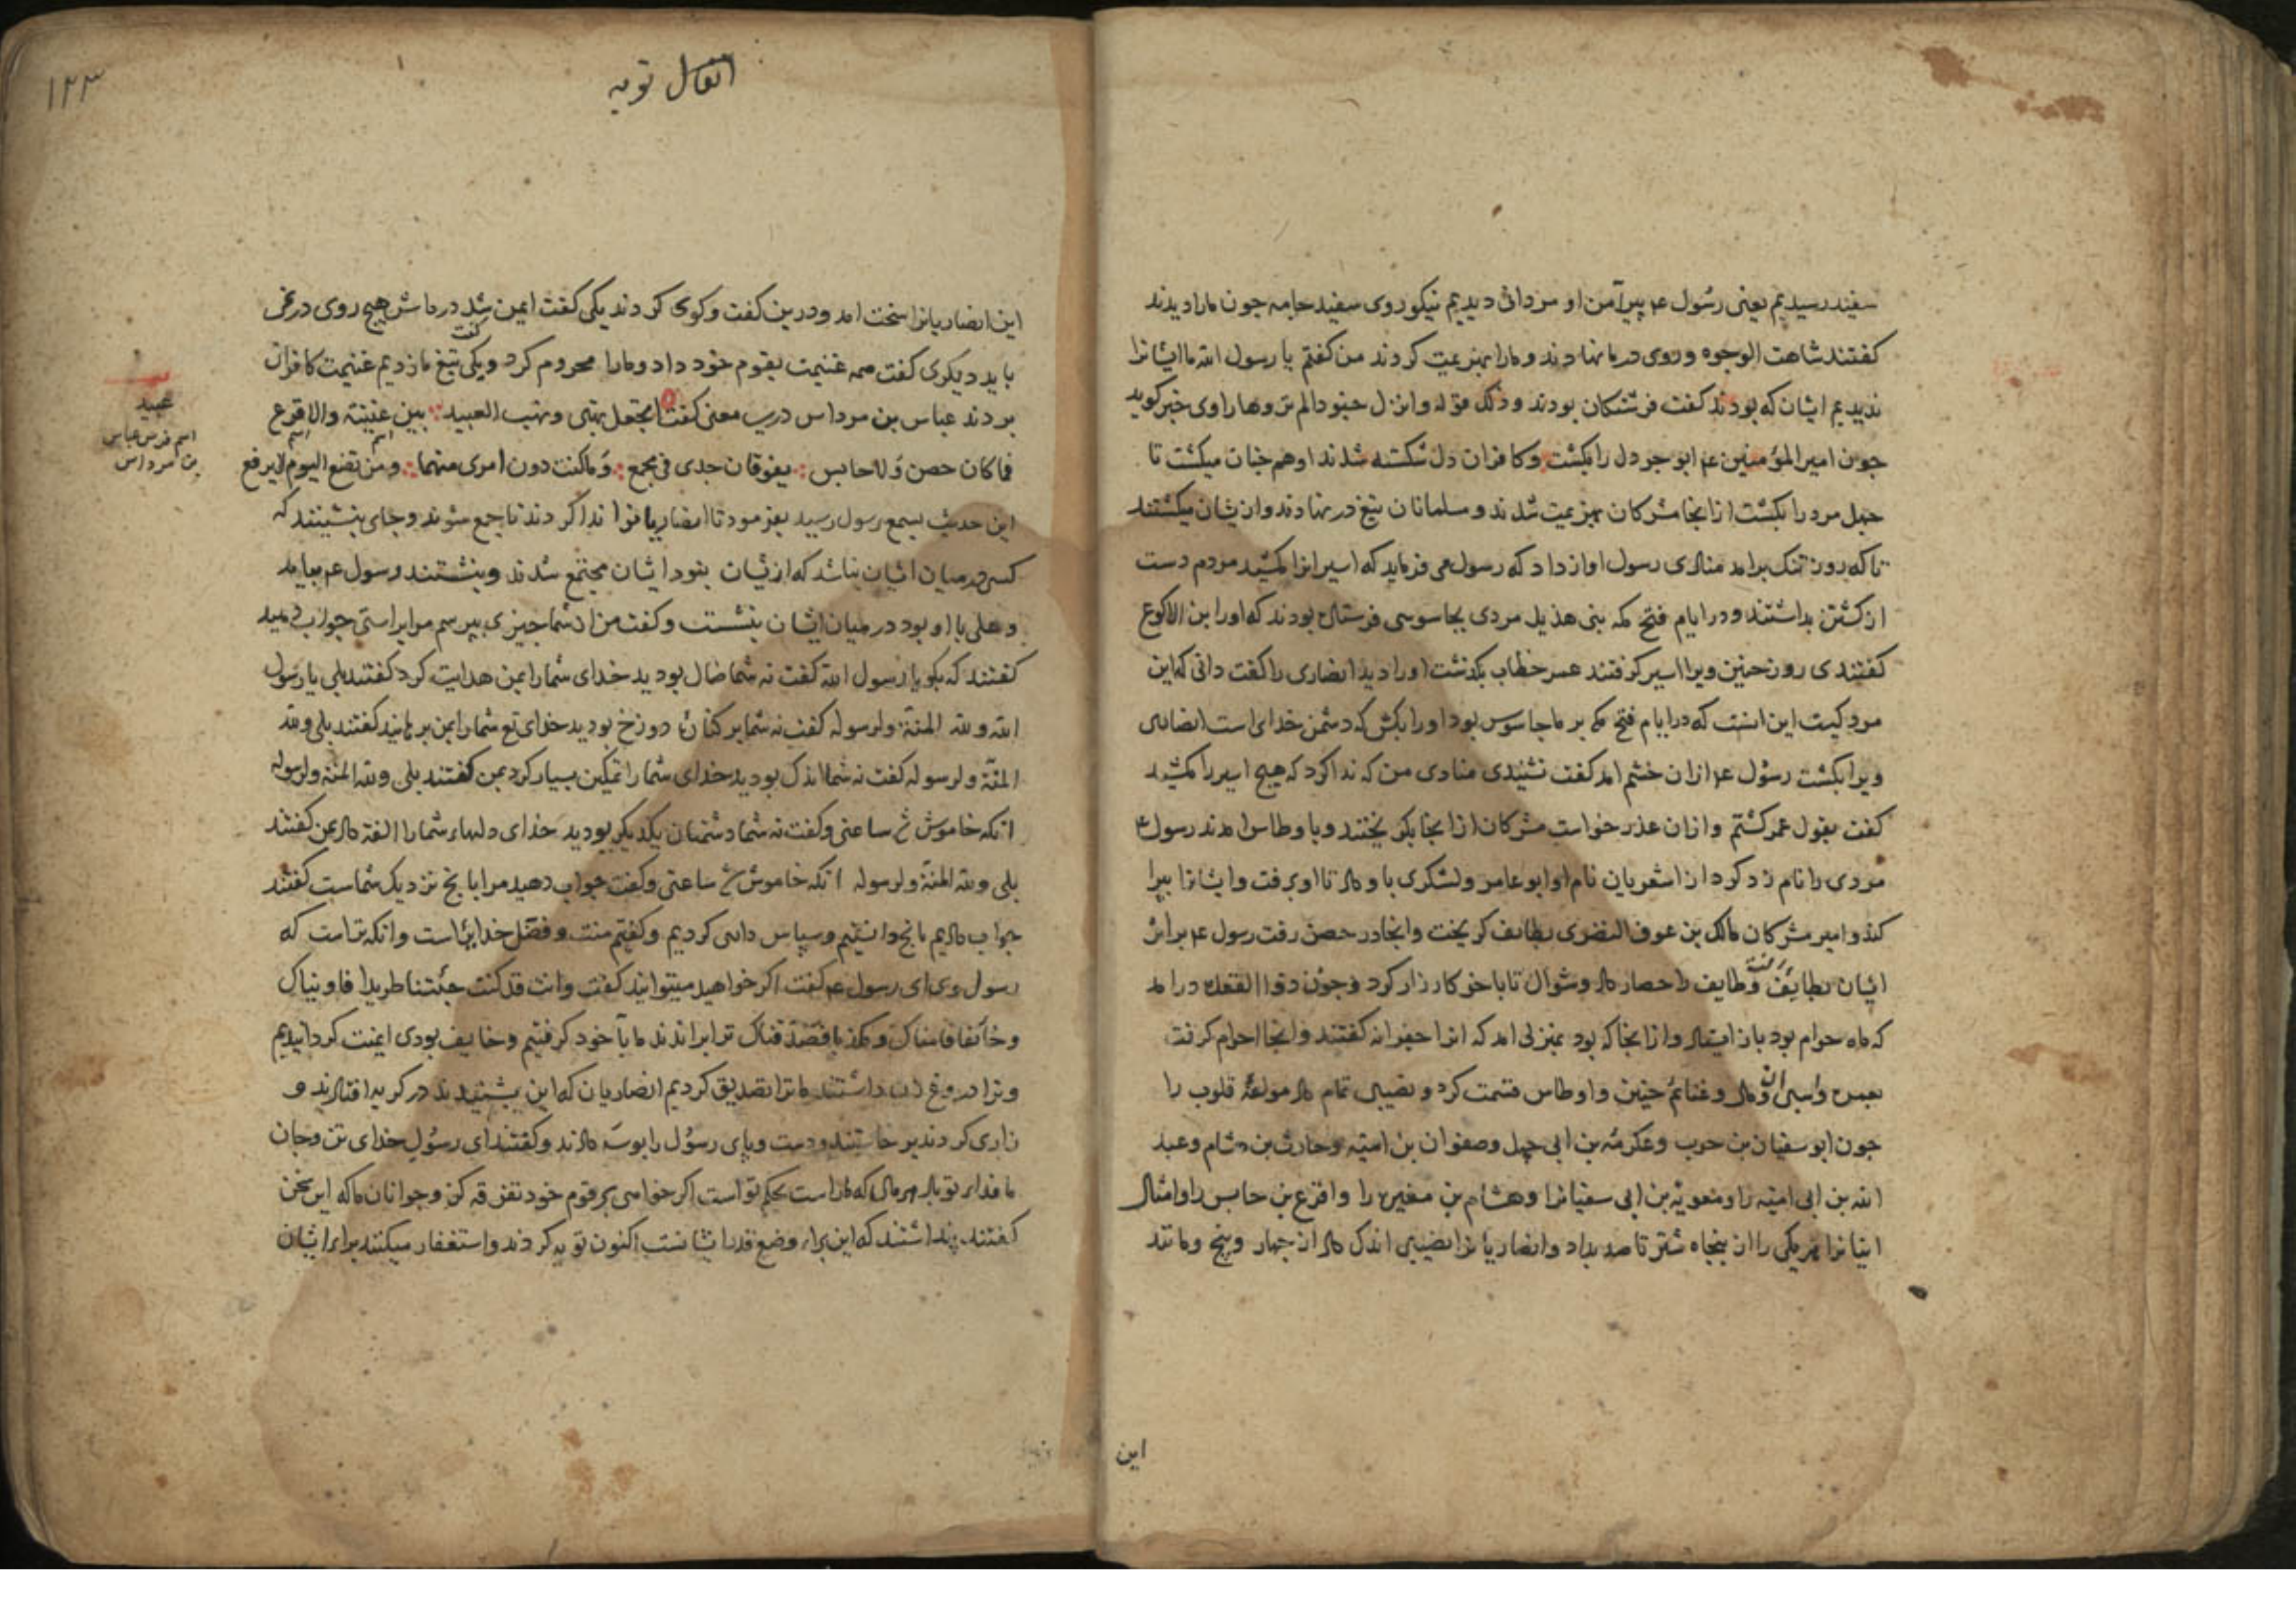 سفید رسیدیم یعنی رسول ع پیرآمن او مردانی دیدیم نیکو روی سفید جامه جون مارا دیدند
کفتند شاهت الوجوه و روی در ما نهادند و مارا بهزیمت کردند من کفتم یا رسول الله ما ایشانرا
ندیدیم ایشان که بودند کفت فرشتکان بودند و ذلک قوله وانزل جنودا لم تروها راوی خبر کوید
جون امیر المؤمنین ع ابو جردل را بکشت و کافران دل شکسته شدند او هم جنان میکشت تا
جهل مرد را بکشت از انجا مشرکان بهزیمت شدند و مسلمانان تیغ در نهادند و ازیشان میکشتند
تا که روز تنک برامد منادی رسول اواز داد که رسول می فرماید که اسیرانرا مکشید مردم دست
از کشتن بداشتند و در ایام فتح مکه بنی هذیل مردی بجاسوسی فرستاده بودند که اورا ابن الاکوع
کفتندی روز حنین ویرا اسیر کرفتند عمر خطاب بکذشت اورا دید انصاری را کفت دانی که این
مرد کیست این انست که در ایام فتح مکه بر ما جاسوس بود اورا بکش که دشمن خدای است انصاری
ویرا بکشت رسول ع ازان خشم امد کفت نشنیدی منادی من که ندا کرد که هیج اسیر را مکشید
کفت بقول عمر کشتم و ازان عذر خواست مشرکان از انجا بکریختند و باوطاس امدند رسول ع
مردی را نام زد کرد از اشعریان نام او ابو عامر ولشکری باو داد تا او برفت و ایشانرا بپرا
کند و امیر مشرکان مالک بن عوف النضری بطایف کریخت و انجا در حصن رفت رسول ع بر اثر
ایشان بطایف رفت و طایف را حصار داد و شوال تا باخر کارزار کرد و جون ذوا القعده درامد
که ماه حرام بود باز ایستاد و از انجا که بود بمنزلی امد که انرا جعرانه کفتند و انجا احرام کرفت
بعمره و اسیران و مال و غنایم حنین و اوطاس قسمت کرد و نصیبی تمام داد مولفة قلوب را
جون ابو سفیان بن حرب و عکرمه بن ابی جهل و صفوان بن امیه و حارث بن هشام و عبد
الله بن ابی امیه را و معویة بن ابی سفیانرا و هشام بن مغیره را و اقرع بن حابس را و امثال
ایشانرا هر یکی را از بنجاه شتر تا صد بداد و انصاریانرا نصیبی اندک داد از جهار و پنج و مانند
این
انفال توبه
۱۲۳
این انصاریانرا سخت امد و درین کفت و کوی کردند یکی کفت ایمن شد در ماش هیج روی در نمی
باید دیکری کفت همه غنیمت بقوم خود داد و مارا محروم کرد و یکی کفت تیغ ما زدیم غنیمت کافران
بردند عباس بن مرداس درین معنی کفت اتجعل نهبی ونهب العبید بین عیینة والاقرع
فما کان حصن ولا حابس یفوقان جدی فی مجمع وما کنت دون امری منهما ومن تضع الیوم لا یرفع
عبید
اسم فرس عباس
بن مرداس
این حدیث بسمع رسول رسید بفرمود تا انصاریانرا ندا کردند تا جمع شوند و جای بنشینند که
کسی در میان ایشان نباشد که ازیشان بنود ایشان مجتمع شدند و بنشستند رسول ع بیامد
و علی با او بود در میان ایشان بنشست و کفت من از شما جیزی بپرسم مرا براستی جواب دهید
کفتند که بکو یا رسول الله کفت نه شما ضال بودید خدای شمارا بمن هدایت کرد کفتند بلی یا رسول
الله ولله المنة ولرسوله کفت نه شما بر کنار دوزخ بودید خدای تع شمارا بمن برهانید کفتند بلی ولله
المنة ولرسوله کفت نه شما اندک بودید خدای شمارا تمکین بسیار کرد بمن کفتند بلی ولله المنة ولرسوله
انکه خاموش شد ساعتی و کفت نه شما دشمنان یکدیکر بودید خدای دلهاء شمارا الفة داد بمن کفتند
بلی ولله المنة ولرسوله انکه خاموش شد ساعتی و کفت جواب دهید مرا بانج نزدیک شماست کفتند
جواب دادیم بانج دانستیم و سپاس داری کردیم و کفتیم منت و فضل خدایراست و انکه تراست که
رسول وی ای رسول ع کفت اکر خواهید میتوانید کفت وانت قد کنت جئتنا طریدا فاوینا ک
وخائفا فامناک و مکذبا فصدقناک ترا براندند ما با خود کرفتیم و خایف بودی ایمنت کردانیدیم
و ترا دروغ زن داشتند ما ترا تصدیق کردیم انصاریان که این بشنیدند در کریه افتادند و
زاری کردند برخاستند و دست و پای رسول را بوسه دادند و کفتند ای رسول خدای تن و جان
ما فداء تو باد هر مال که ماراست بحکم تو است اکر خواهی بر قوم خود تفرقه کن و جوانان ما که این سخن
کفتند پنداشتند که این براء وضع قدر ایشانست اکنون توبه کردند و استغفار میکنند براء ایشان